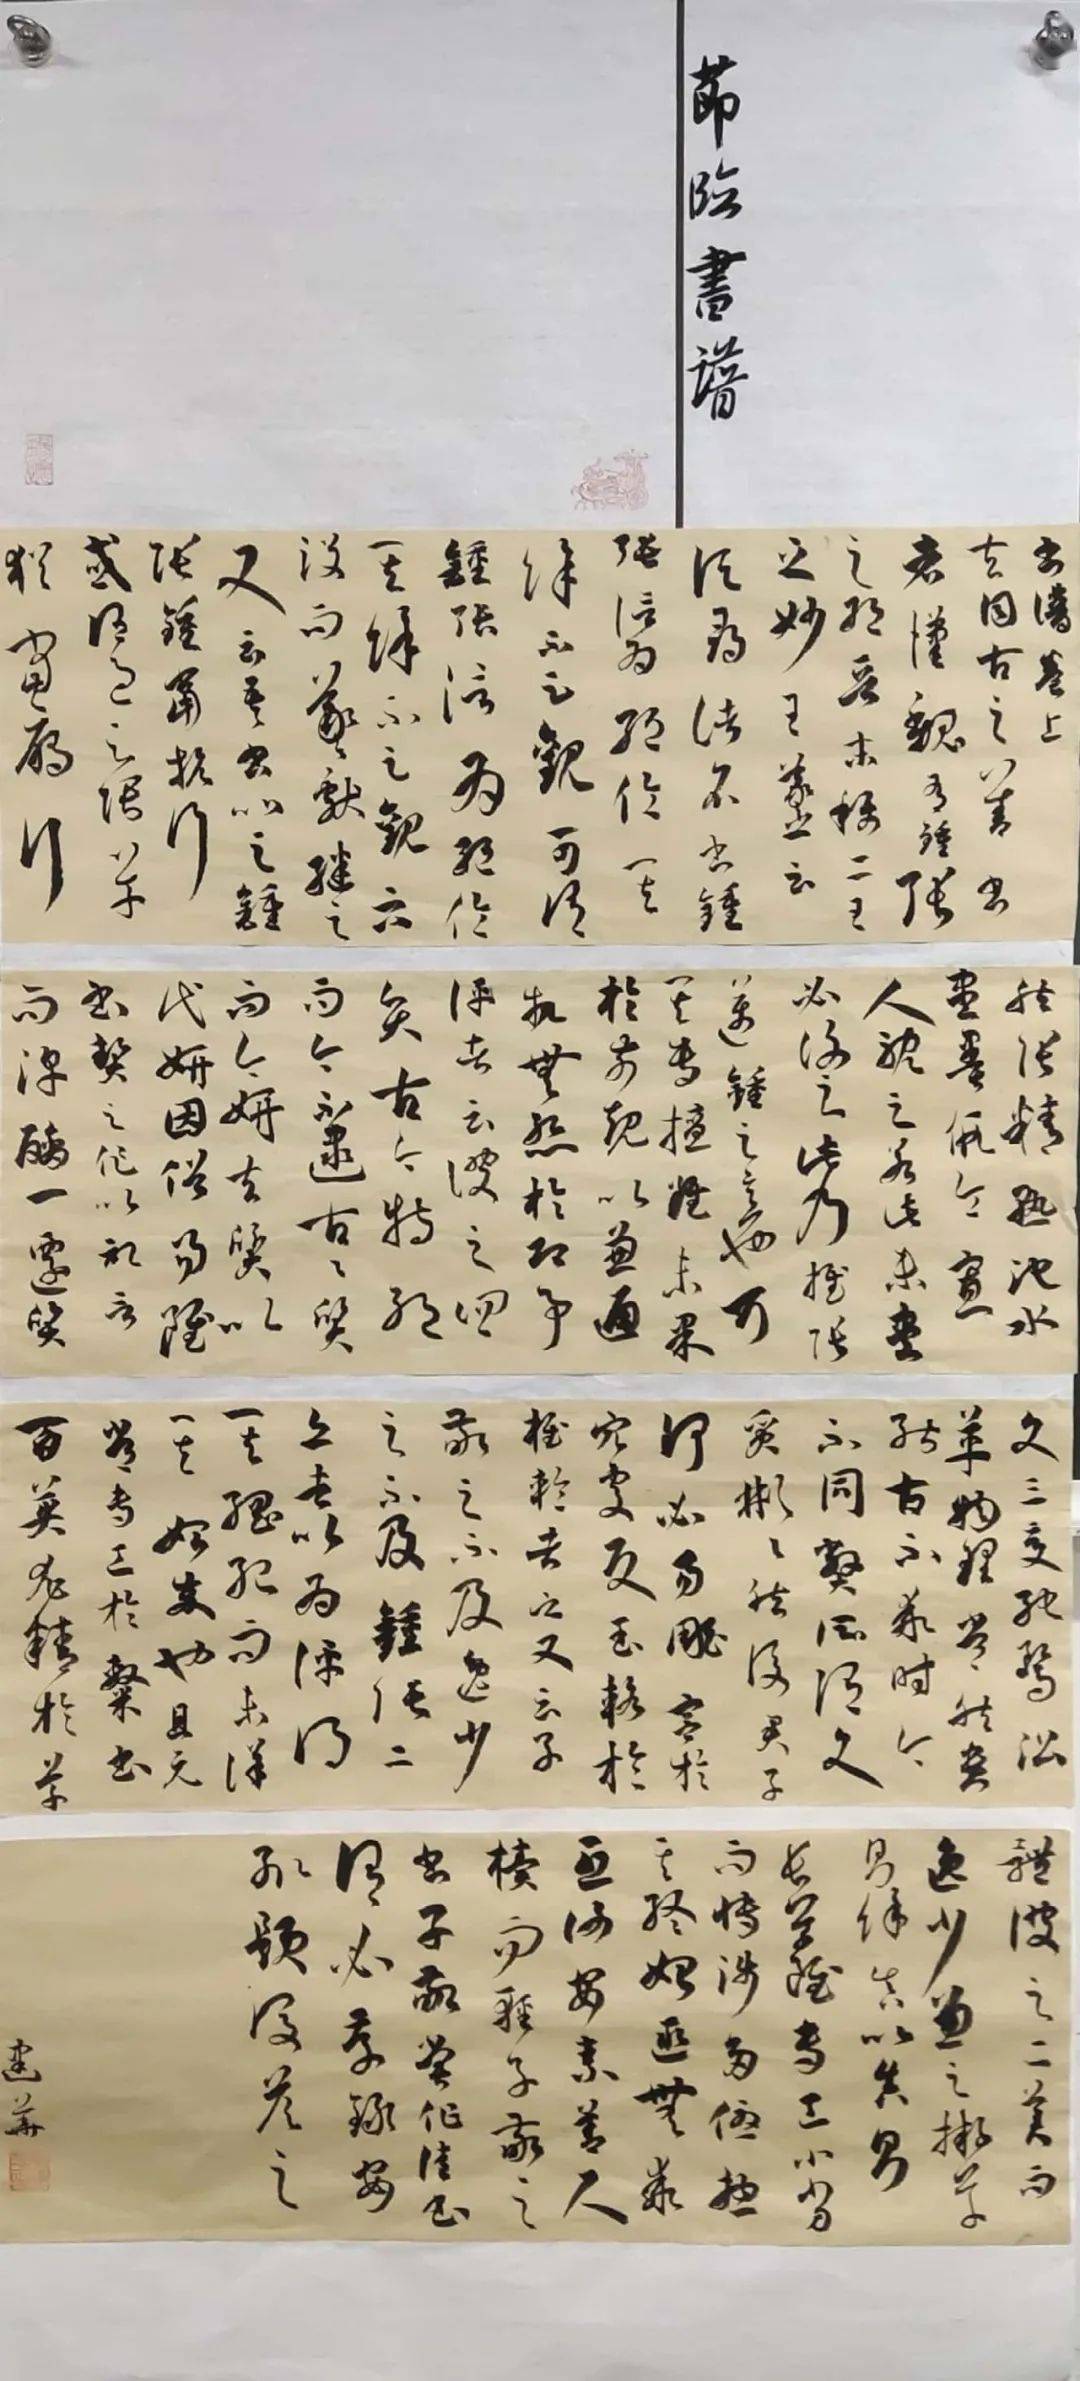 節臨書譜
書譜卷上
夫自古之善書
者漢魏有鍾張
之絕晉末稱二王
之妙王羲之云
頃尋諸名書鍾
張信為絕倫其
餘不足觀可謂
鍾張信為絕倫
其餘不足觀云
沒而羲獻繼之
又云吾書比之鍾
張鍾當抗行
或謂過之張草
猶當雁行
然張精熟池水
盡墨假令寡
人耽之若此未盡
必謝之此乃推張
邁鍾之意也考
其專擅雖未果
於前規以兼通
故無慙於即事
評者云彼之四
賢古今特絕
而今不逮古〻質
而今妍夫質以
代妍因俗易雖
書契之作以記言
而淳醨一遷質
文三變馳騖沿
革物理常然貴
能古不乖時今
不同弊所謂文
質彬〻然後君子
何必易雕宮於
穴處反玉輅於
椎輪者乎又云子
敬之不及逸少
之不及鍾張二
者以為評得
其綱紀而未詳
其始末也且元
常專工於隸書
百英尤精於草
體彼之二美而
逸少兼之擬草
則餘真比真則
長草雖專工小劣
而博涉多優摠
其終始匪無乖
互謝安素善尺
牘而輕子敬之
書子敬嘗作佳書
謂必存錄安
輒題後答之
建華